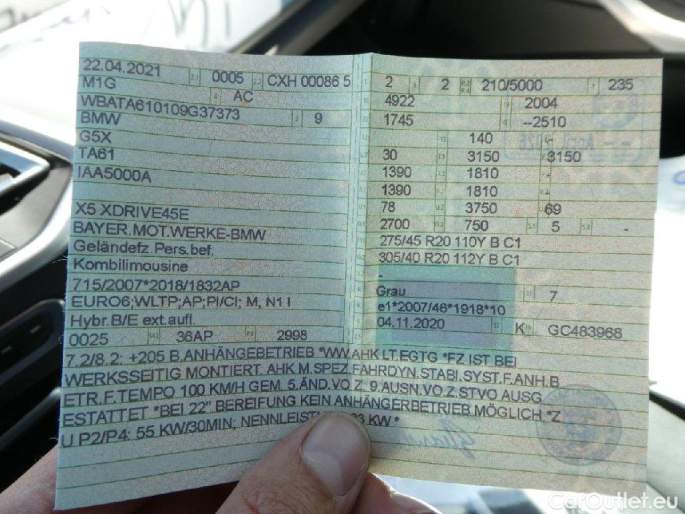 22.04.2021 0005 CXH 00086 5
M1G AC
WBATA610109G37373
BMW 9
G5X
TA61
IAA5000A
X5 XDRIVE45E
BAYER.MOT.WERKE-BMW
Geländefz.Pers.bef.
Kombilimousine
715/2007*2018/1832AP
EURO6;WLTP;AP;PI/CI; M, N1 I
Hybr.B/E ext.aufl.
0025 36AP 2998
2 2 210/5000 235
4922 2004
1745 --2510
140
30 3150 3150
1390 1810 -
1390 1810 -
78 3750 69
2700 750 5 -
275/45 R20 110Y B C1
305/40 R20 112Y B C1
-
Grau 7
e1*2007/46*1918*10
04.11.2020 K GC483968
7.2/8.2: +205 B.ANHÄNGEBETRIEB *WW.AHK LT.EGTG *FZ IST BEI
WERKSSEITIG MONTIERT. AHK M.SPEZ.FAHRDYN.STABI.SYST.F.ANH.B
ETR.F.TEMPO 100 KM/H GEM. 5.ÄND.VO Z. 9.AUSN.VO Z.STVO AUSG
ESTATTET *BEI 22" BEREIFUNG KEIN ANHÄNGERBETRIEB MÖGLICH *Z
U P2/P4: 55 KW/30MIN; NENNLEIST 83 KW *
CarOutlet.eu